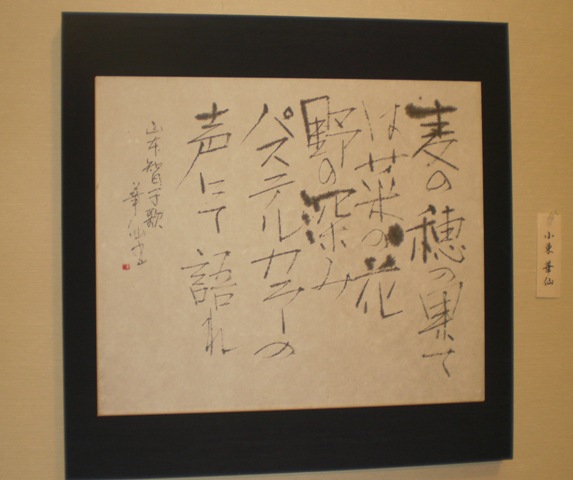 麦の穂の果て
は菜の花
野の深み
パステルカラーの
声にて語れ
山本智子歌
華仙書
小東華仙